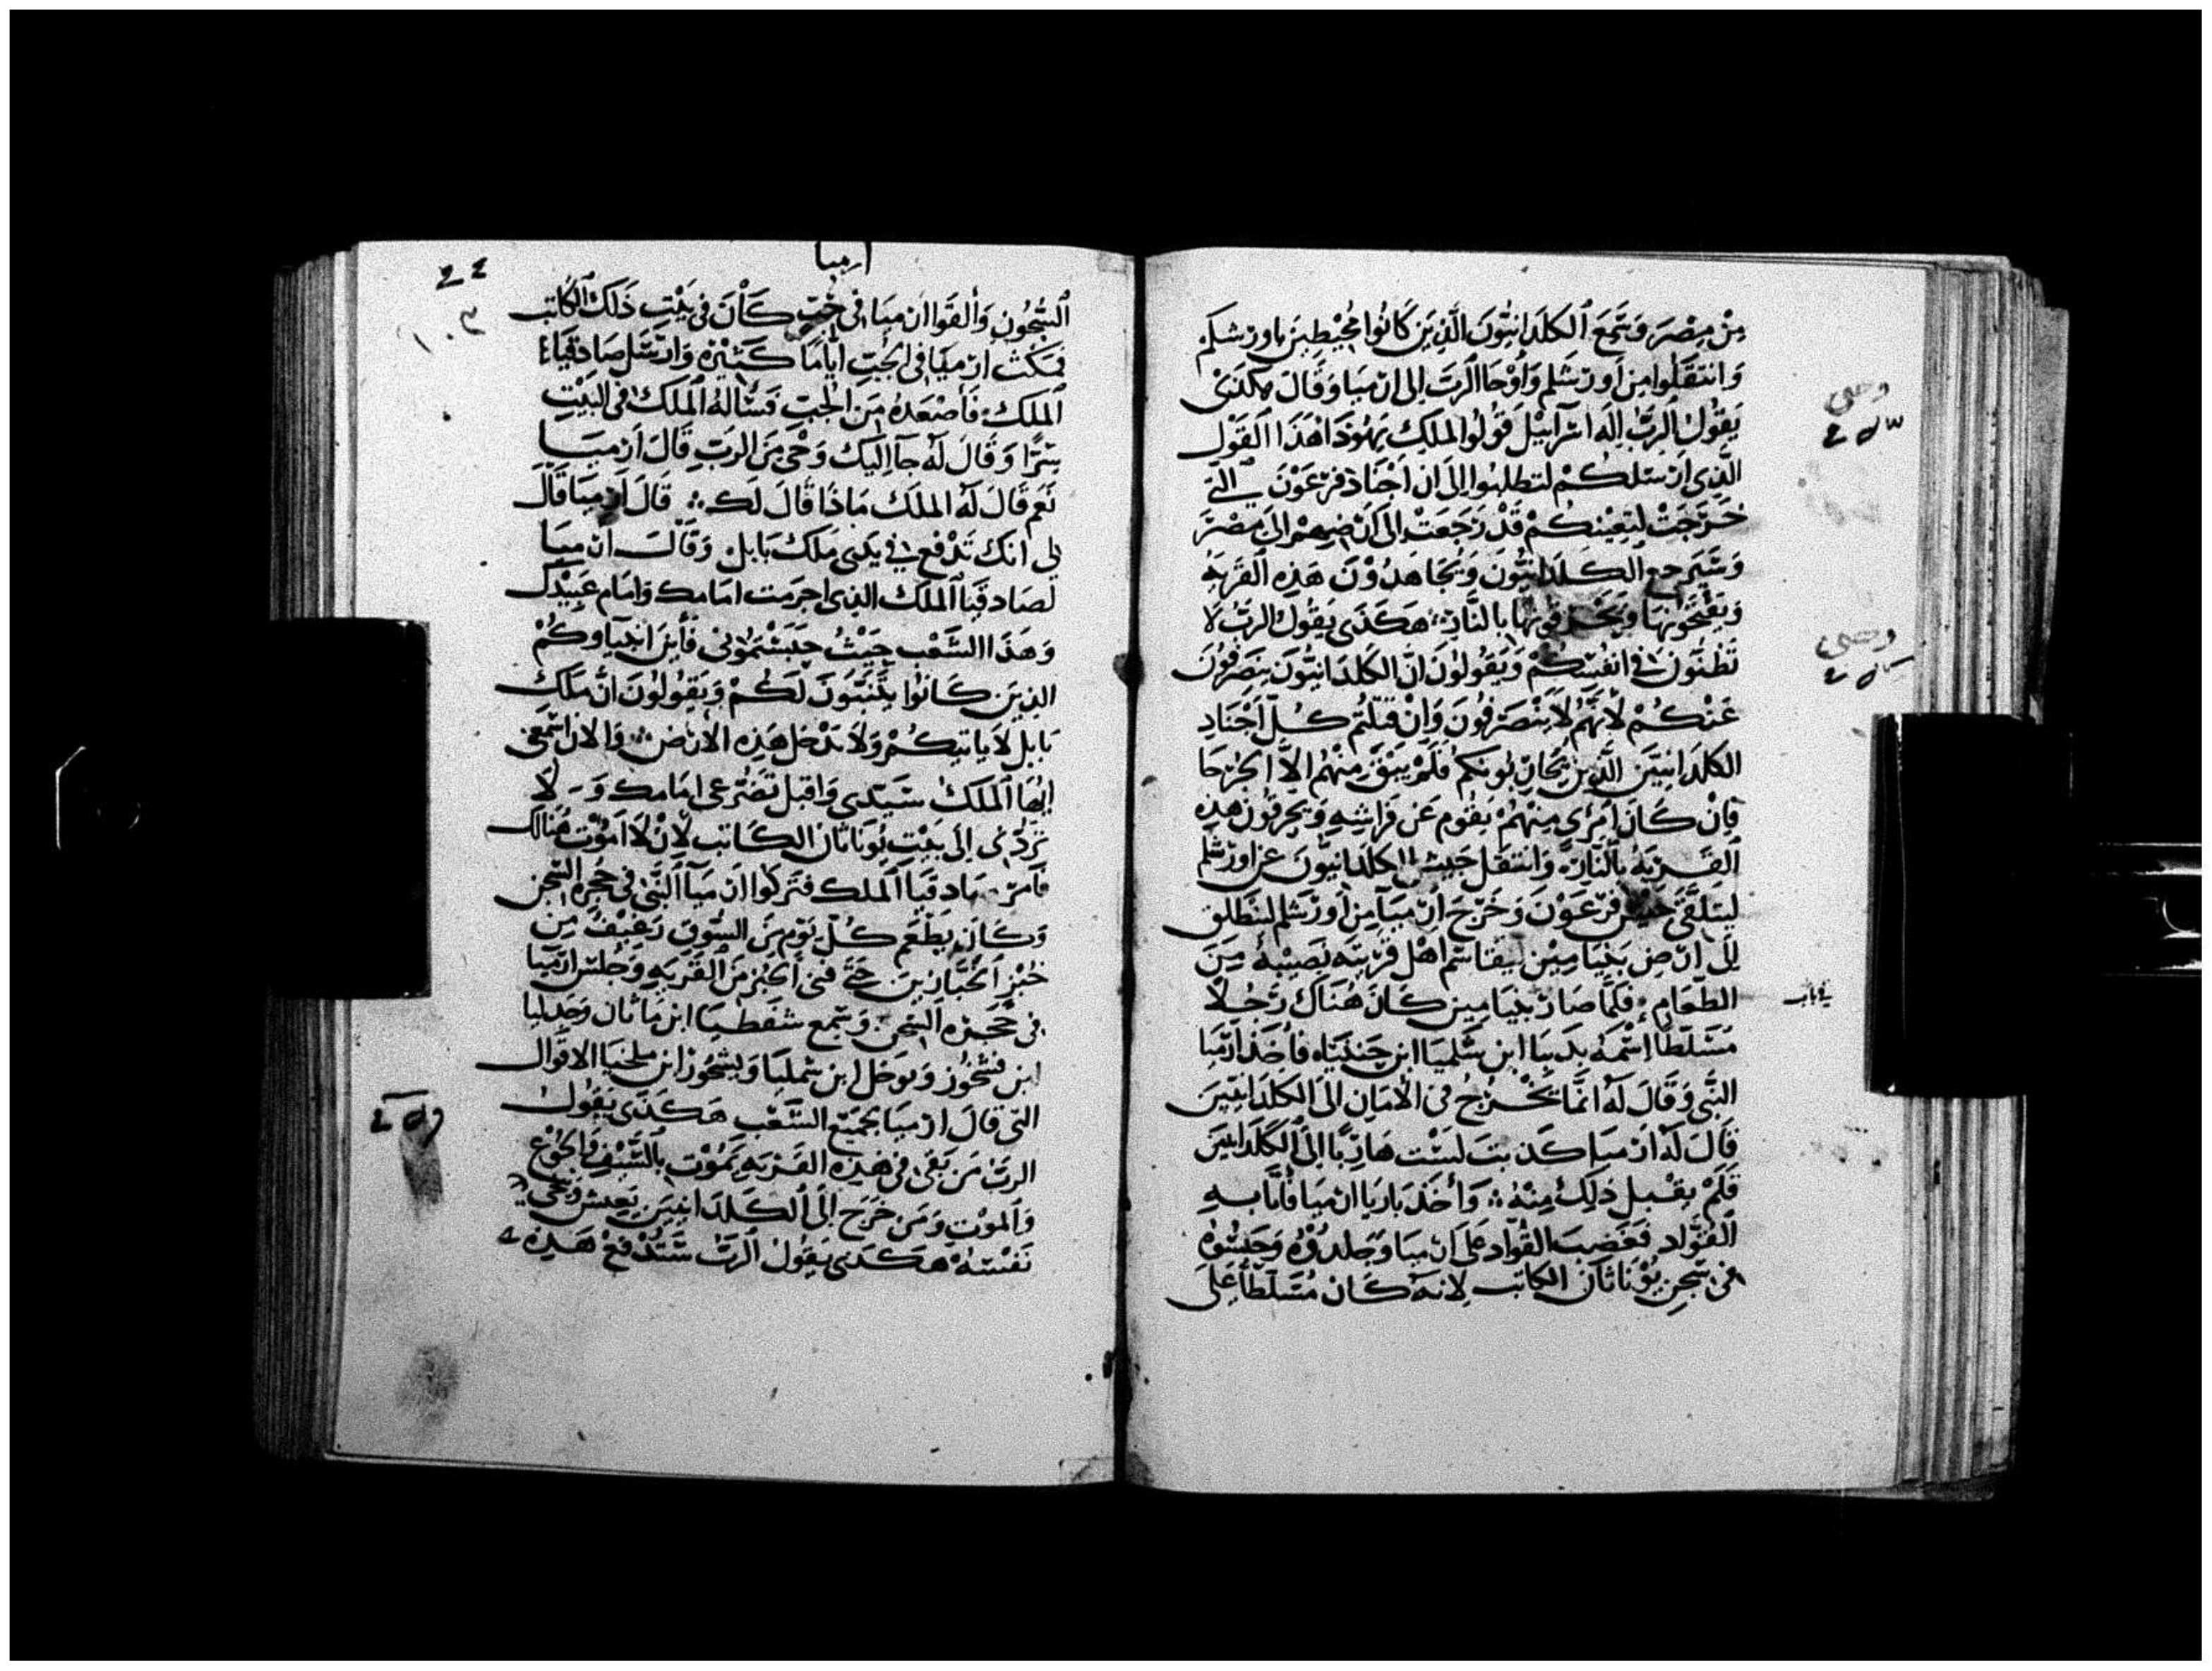 من مصر وسمع الكلدانيون الذين كانوا محيطين باورشلم
وانتقلوا من اورشلم واوحا الرب الى ارميا وقال هكذى
يقول الرب اله اسرآييل قولوا لملك يهوذا هذا القول
الذى ارسلكم لتطلبوا الى ان اجناد فرعون التى
خرجت لتعينكم قد رجعت الى ارضهم الى مصر
وسيرجع الكلدانيون ويجاهدون هذه القريه
ويفتحونها ويحرقونها بالنار هكذى يقول الرب لا
تظنون فى انفسكم ويقولون ان الكلدانيون ينصرفون
عنكم لانهم لا ينصرفون وان قتلتم كل اجناد
الكلدانيين الذين يحاربونكم فلم يبق منهم الا الجرحا
فان كان امرى منهم يقوم عن فراشه ويحرقون هذه
القريه بالنار وانتقل جيش الكلدانيون عن اورشلم
ليتلقى جيش فرعون وخرج ارميا من اورشلم لينطلق
الى ارض بنيامين ليقاسم اهل قريته نصيبه من
الطعام فلما صار بنيامين كان هناك رجلا
مسلطا اسمه بديا ابن شلميا ابن حننياه فاخذ ارميا
النبى وقال له انما تخرج فى الامان الى الكلدانيين
قال له ارميا كذبت لست هاربا الى الكلدانيين
فلم يقبل ذلك منه واخذ باريا ارميا فاتا به
القواد فغضب القواد على ارميا وجلدوه وحبسوه
فى سجن يوناثان الكاتب لانه كان مسلطا على
وحى
وحى
ارميا
١٠٣
السجون والقوا ارميا فى جب كان فى بيت ذلك الكاتب
فمكث ارميا فى الجب اياما كثيره وارسل صادقيا
الملك فاصعده من الجب فساله الملك فى البيت
سرا وقال له جآ اليك وحى من الرب قال ارميا
نعم قال له الملك ماذا قال لك قال ارميا قال
لى انك تدفع فى يدى ملك بابل وقال ارميا
لصادقيا الملك الذى اجرمت امامك وامام عبيدك
وهذا الشعب حيث حبستمونى فاين انبياوكم
الذين كانوا يتنبون لكم ويقولون ان ملك
بابل لا ياتيكم ولا يدخل هذه الارض والان استمع
ايها الملك سيدى واقبل تضرعى امامك ولا
تردنى الى بيت يوناثان الكاتب لان لا اموت هنالك
فامر صادقيا الملك فتركوا ارميا النبى فى حجره السجن
وكان يطعم كل يوم من السوق رغيف من
خبز الخبازين حتى فنى الخبز من القريه وجلس ارميا
فى حجره السجن وسمع شفطيا ابن ماثان وجدليا
ابن فشحور ويوخل ابن شمليا وبشحور ابن ملخيا الاقوال
التى قال ارميا بجميع الشعب هكذى يقول
الرب من بقى فى هذه القريه يموت بالسيف والجوع
والموت ومن خرج الى الكلدانيين يعيش وتنجى
نفسه هكذى يقول الرب ستدفع هذه